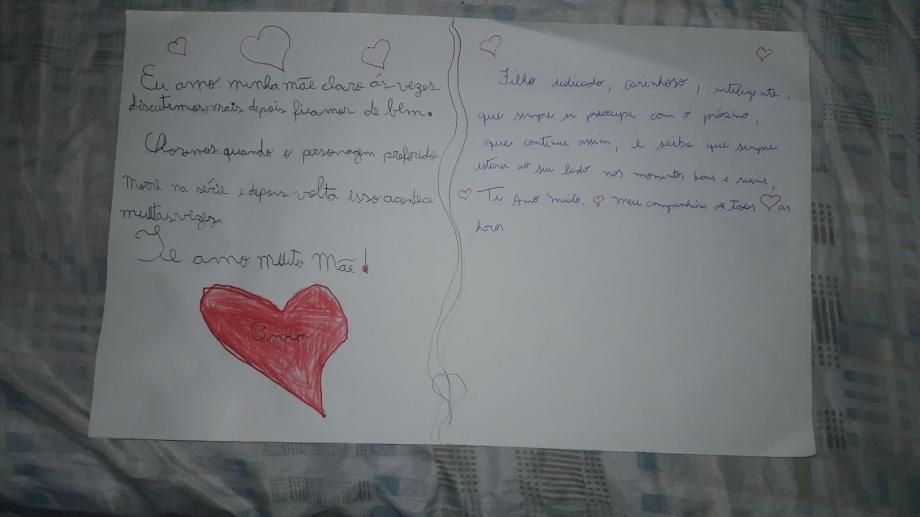 Eu amo minha mãe claro ás vezes
discutimos mais depois ficamos de bem.
Choramos quando o personagem preferido
morre na série e depois volta isso acontece
muitas vezes.
Te amo muito Mãe!
Filho dedicado, carinhoso, inteligente,
que sempre se preocupa com o próximo,
que continue assim, e saiba que sempre
estarei ao seu lado nos momentos bons e ruins,
Ti Amo muito, meu companheiro de todas as
horas